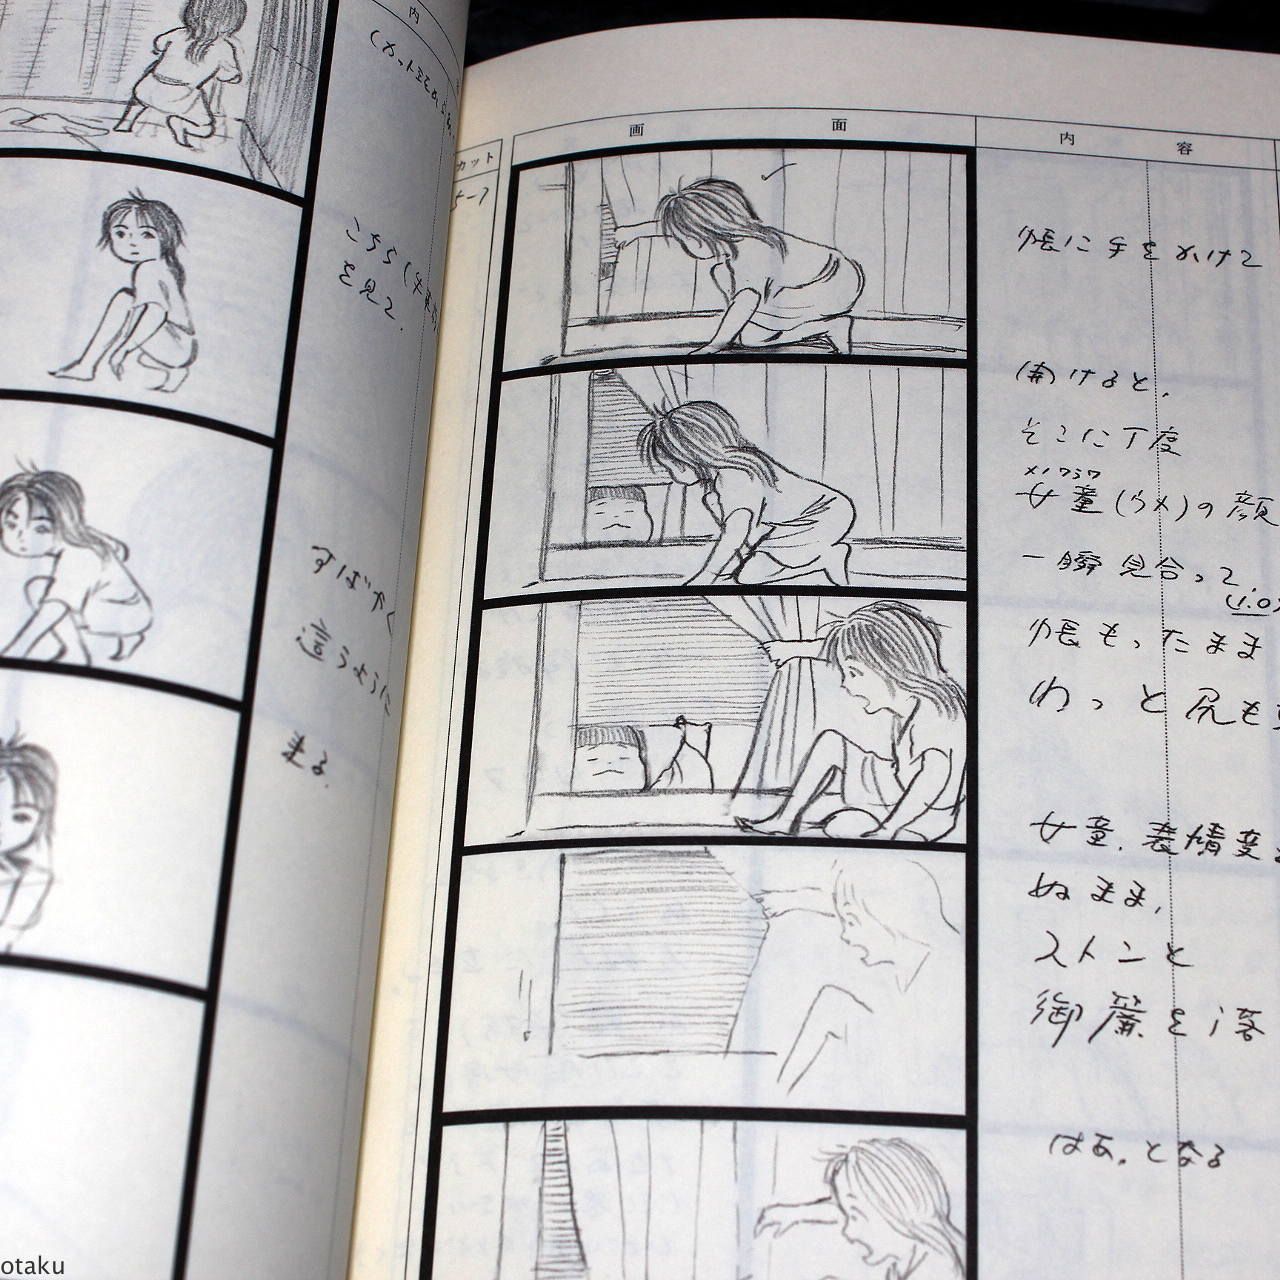 内
こちら
を見て.
すばやく
這うように
来る.
カット
画面
内容
帳に手をかけて
開けると.
そこに丁度
メノワラワ
女童(ウメ)の顔
一瞬見合って.
(1.0
帳もったまま
わっと尻も
女童、表情変
ぬまま,
ストンと
御簾を落
はあ.となる
otaku